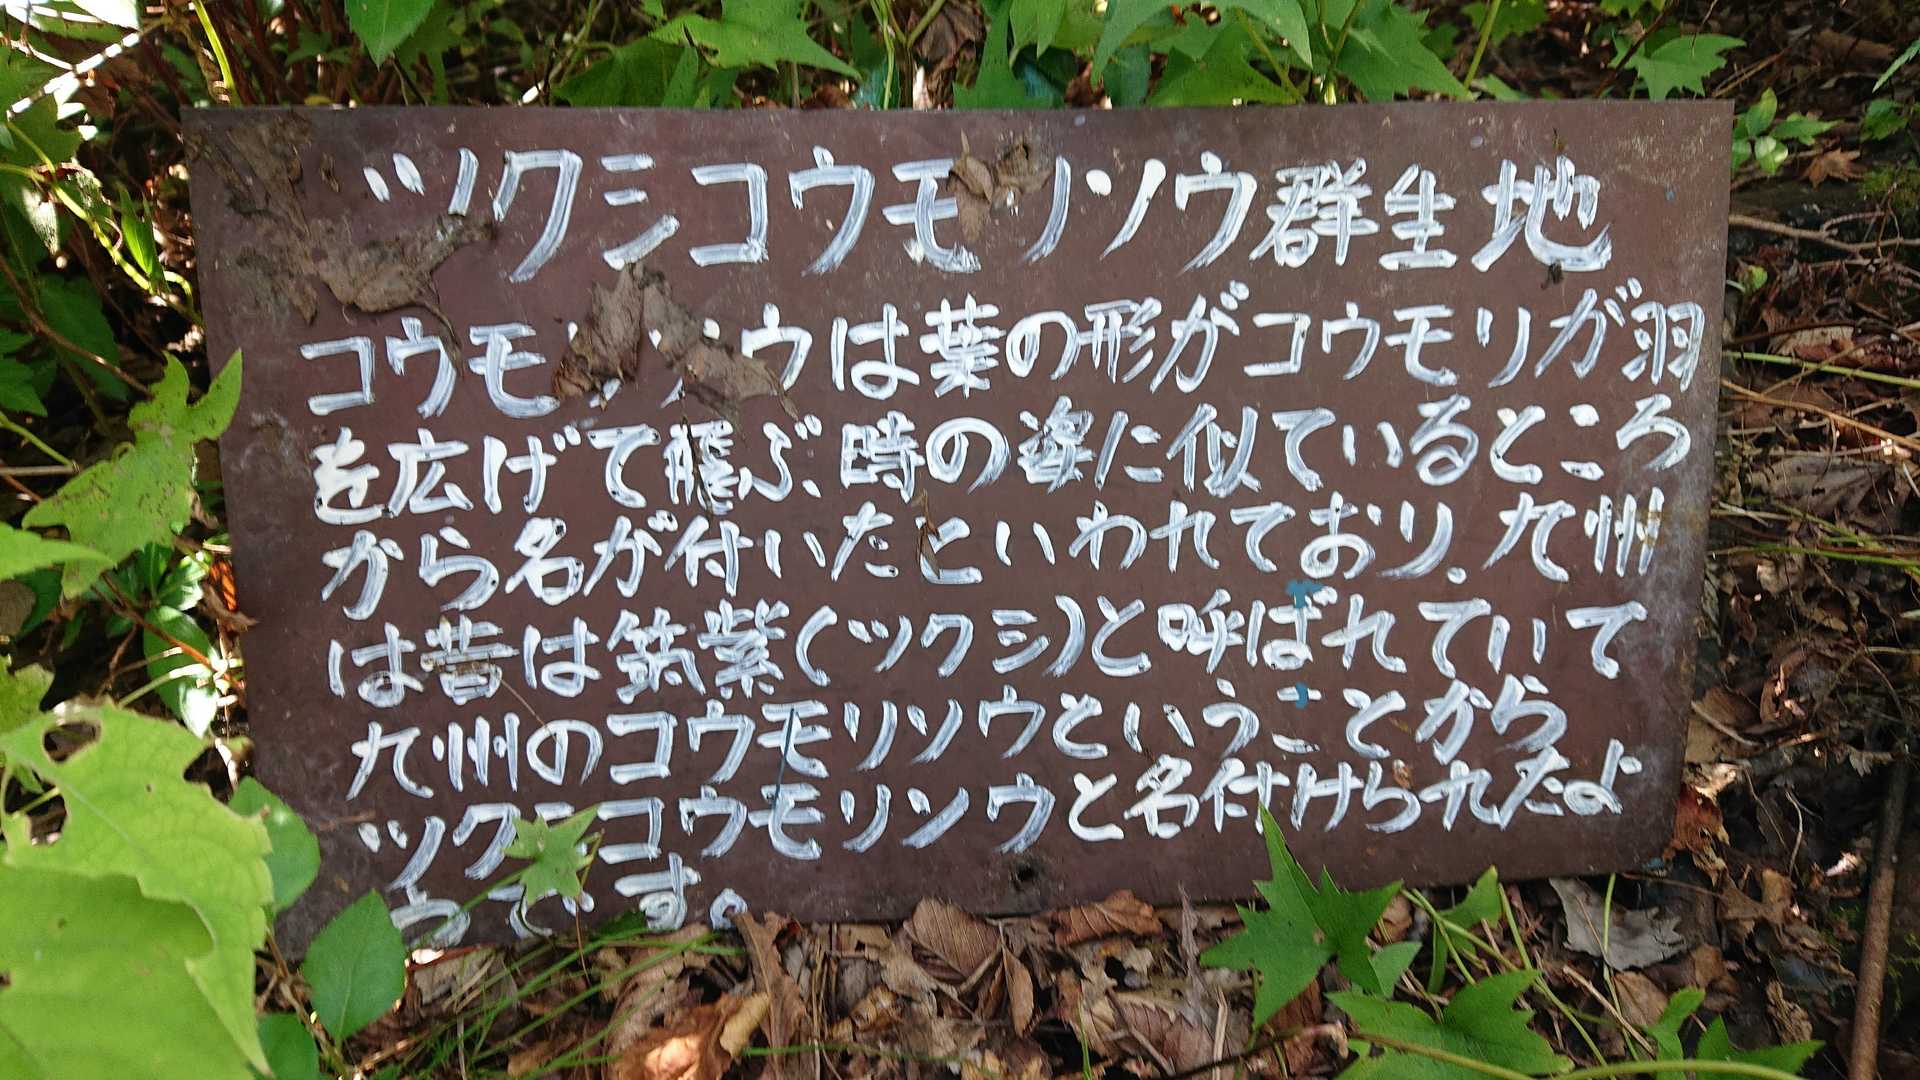 ツクシコウモリソウ群生地
コウモリソウは葉の形がコウモリが羽
を広げて飛ぶ時の姿に似ているところ
から名が付いたといわれており、九州
は昔は筑紫(ツクシ)と呼ばれていて
九州のコウモリソウということから
ツクシコウモリソウと名付けられたよ
うです。